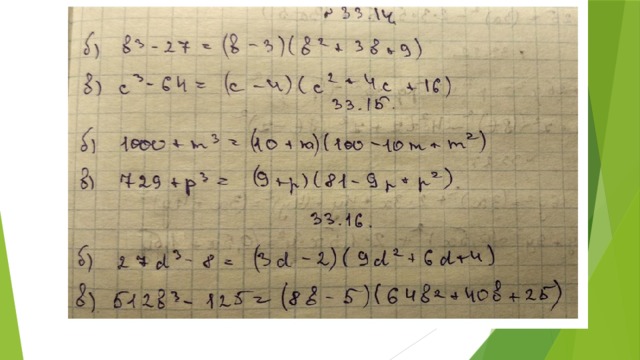 № 33.14
б) b³ - 27 = (b - 3)(b² + 3b + 9)
в) c³ - 64 = (c - 4)(c² + 4c + 16)
33.15.
б) 1000 + m³ = (10 + m)(100 - 10m + m²)
в) 729 + p³ = (9 + p)(81 - 9p + p²)
33.16.
б) 27d³ - 8 = (3d - 2)(9d² + 6d + 4)
в) 512b³ - 125 = (8b - 5)(64b² + 40b + 25)